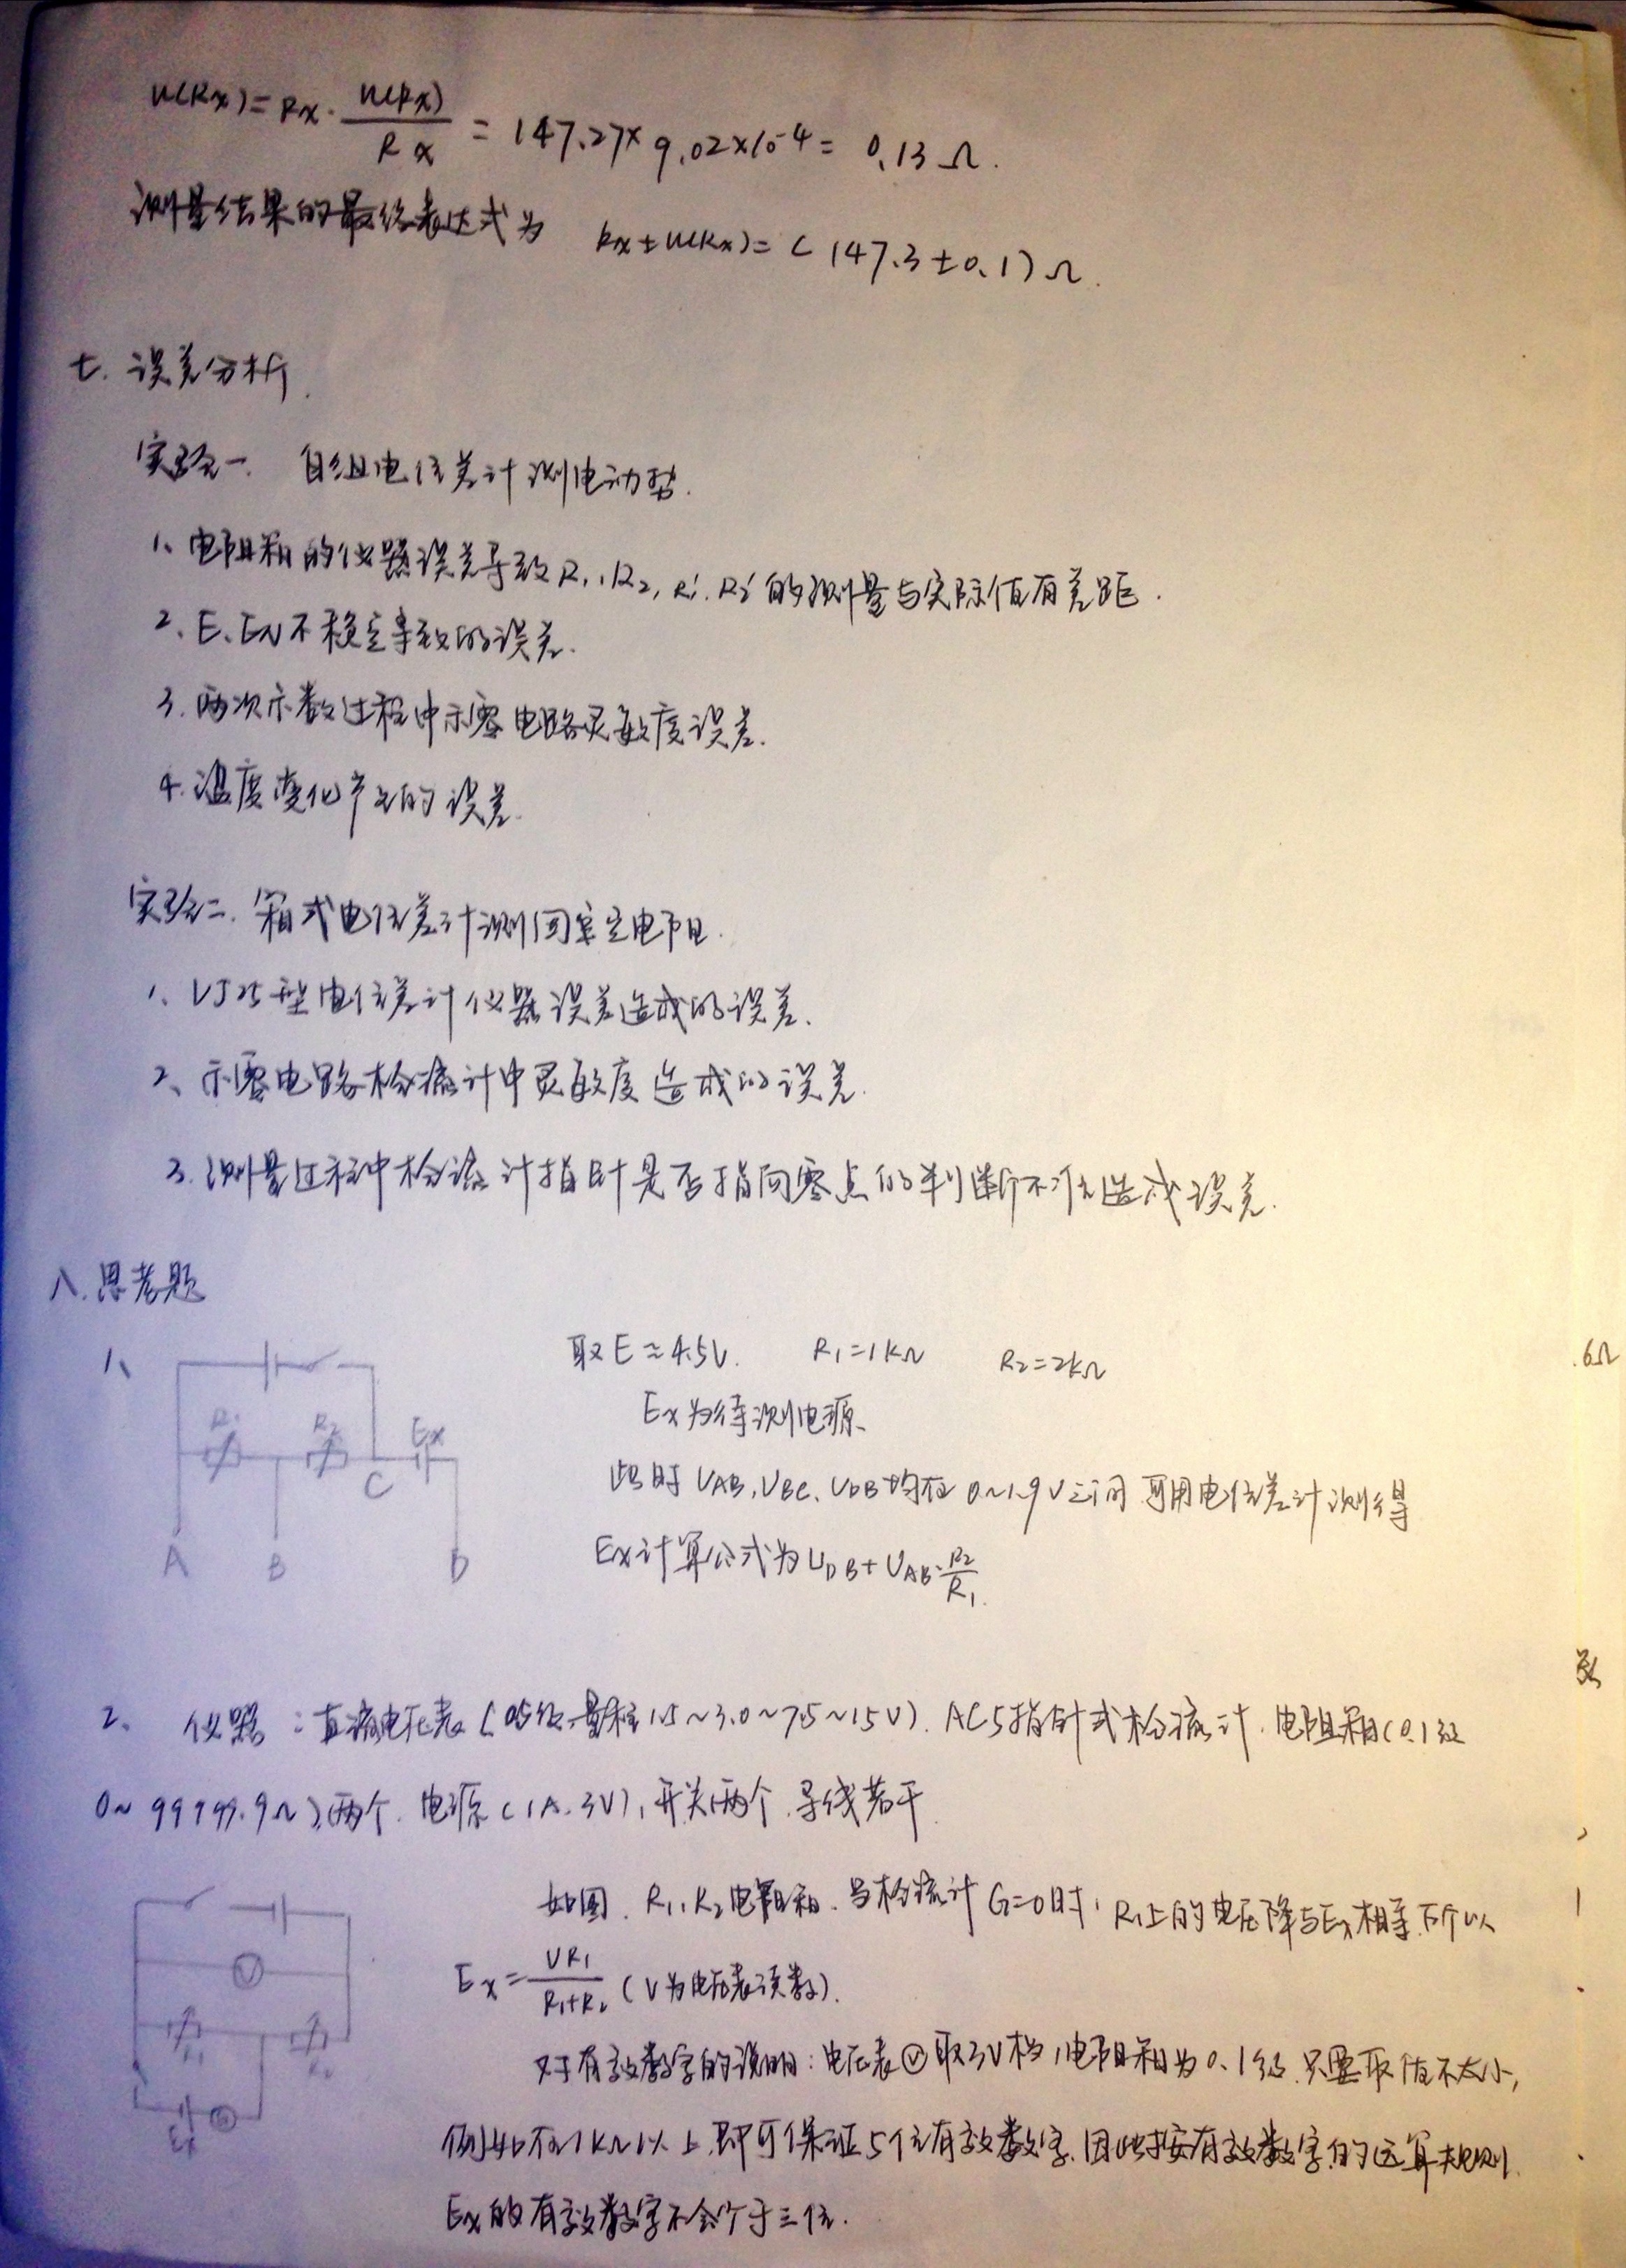 u(Rx)=Rx·u(Rx)/Rx=147.27×9.02×10⁻⁴=0.13Ω.
测量结果的最终表达式为 Rx±u(Rx)=(147.3±0.1)Ω.
七.误差分析.
实验一. 自组电位差计测电动势.
1、电阻箱的仪器误差导致R₁,R₂,R₁',R₂'的测量与实际值有差距.
2、E、EN不稳定导致的误差.
3.两次示数过程中示零电路灵敏度误差.
4.温度变化产生的误差.
实验二.箱式电位差计测固定电阻.
1、UJ25型电位差计仪器误差造成的误差、
2、示零电路检流计中灵敏度造成的误差.
3.测量过程中检流计指针是否指向零点的判断不准造成误差.
八.思考题
1、
取E≈4.5V. R₁=1kΩ R₂=2kΩ
.6Ω
Ex为待测电源、
此时UAB,UBC、UDB均在0~1.9V之间可用电位差计测得
Ex计算公式为UDB+UAB·R₂/R₁.
R₁ R₂ Ex
C
A B D
2、 仪器:直流电压表(0.5级.量程1.5~3.0~7.5~15V).AC5指针式检流计.电阻箱(0.1级
0~99999.9Ω)两个.电源(1A.3V),开关两个.导线若干
如图.R₁,R₂电阻箱.当检流计G=0时,R₁上的电压降与Ex相等.所以
Ex=VR₁/(R₁+R₂)(V为电压表读数).
V
R₁ R₂
Ex G
对于有效数字的说明:电压表Ⓥ取3V档,电阻箱为0.1级.只要取值不太小,
例如在1kΩ以上.即可保证5位有效数字.因此按有效数字的运算规则.
Ex的有效数字不会少于三位.